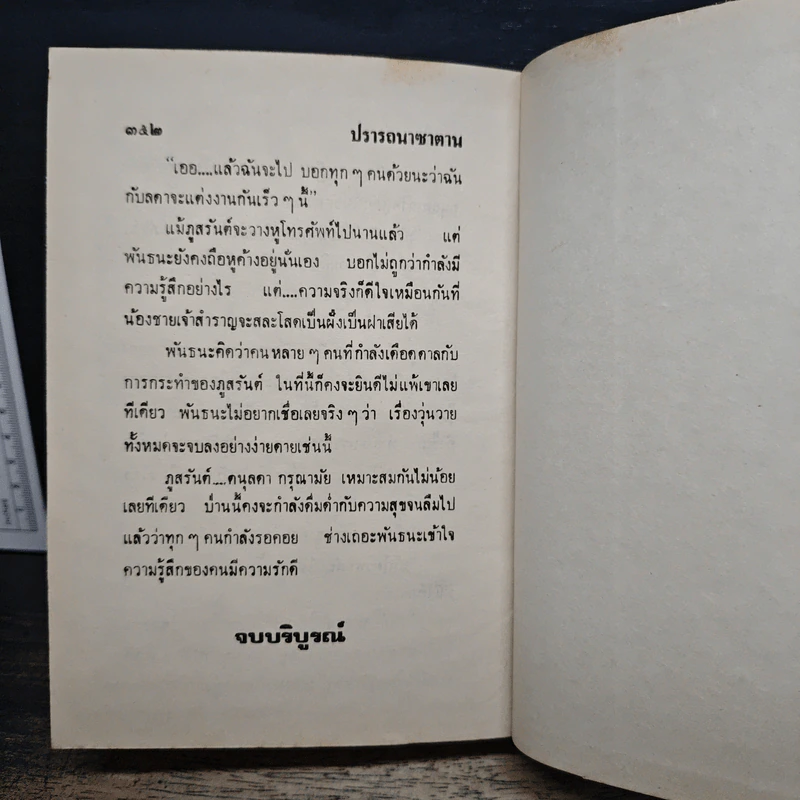 ๓๕๒ ปรารถนาซาตาน
“เออ....แล้วฉันจะไป บอกทุก ๆ คนด้วยนะว่าฉัน
กับลดาจะแต่งงานกันเร็ว ๆ นี้”
แม้ภูสรันต์จะวางหูโทรศัพท์ไปนานแล้ว แต่
พันธนะยังคงถือหูค้างอยู่นั่นเอง บอกไม่ถูกว่ากำลังมี
ความรู้สึกอย่างไร แต่....ความจริงก็ดีใจเหมือนกันที่
น้องชายเจ้าสำราญจะสละโสดเป็นผึ้งเป็นฝาเสียได้
พันธนะคิดว่าคนหลาย ๆ คนที่กำลังเดือดดาลกับ
การกระทำของภูสรันต์ ในที่นี้ก็คงจะยินดีไม่แพ้เขาเลย
ทีเดียว พันธนะไม่อยากเชื่อเลยจริง ๆ ว่า เรื่องวุ่นวาย
ทั้งหมดจะจบลงอย่างง่ายดายเช่นนี้
ภูสรันต์....ดนุลดา กรุณามัย เหมาะสมกันไม่น้อย
เลยทีเดียว ป่านนี้คงจะกำลังดื่มด่ำกับความสุขจนลืมไป
แล้วว่าทุก ๆ คนกำลังรอคอย ช่างเถอะพันธนะเข้าใจ
ความรู้สึกของคนมีความรักดี
จบบริบูรณ์